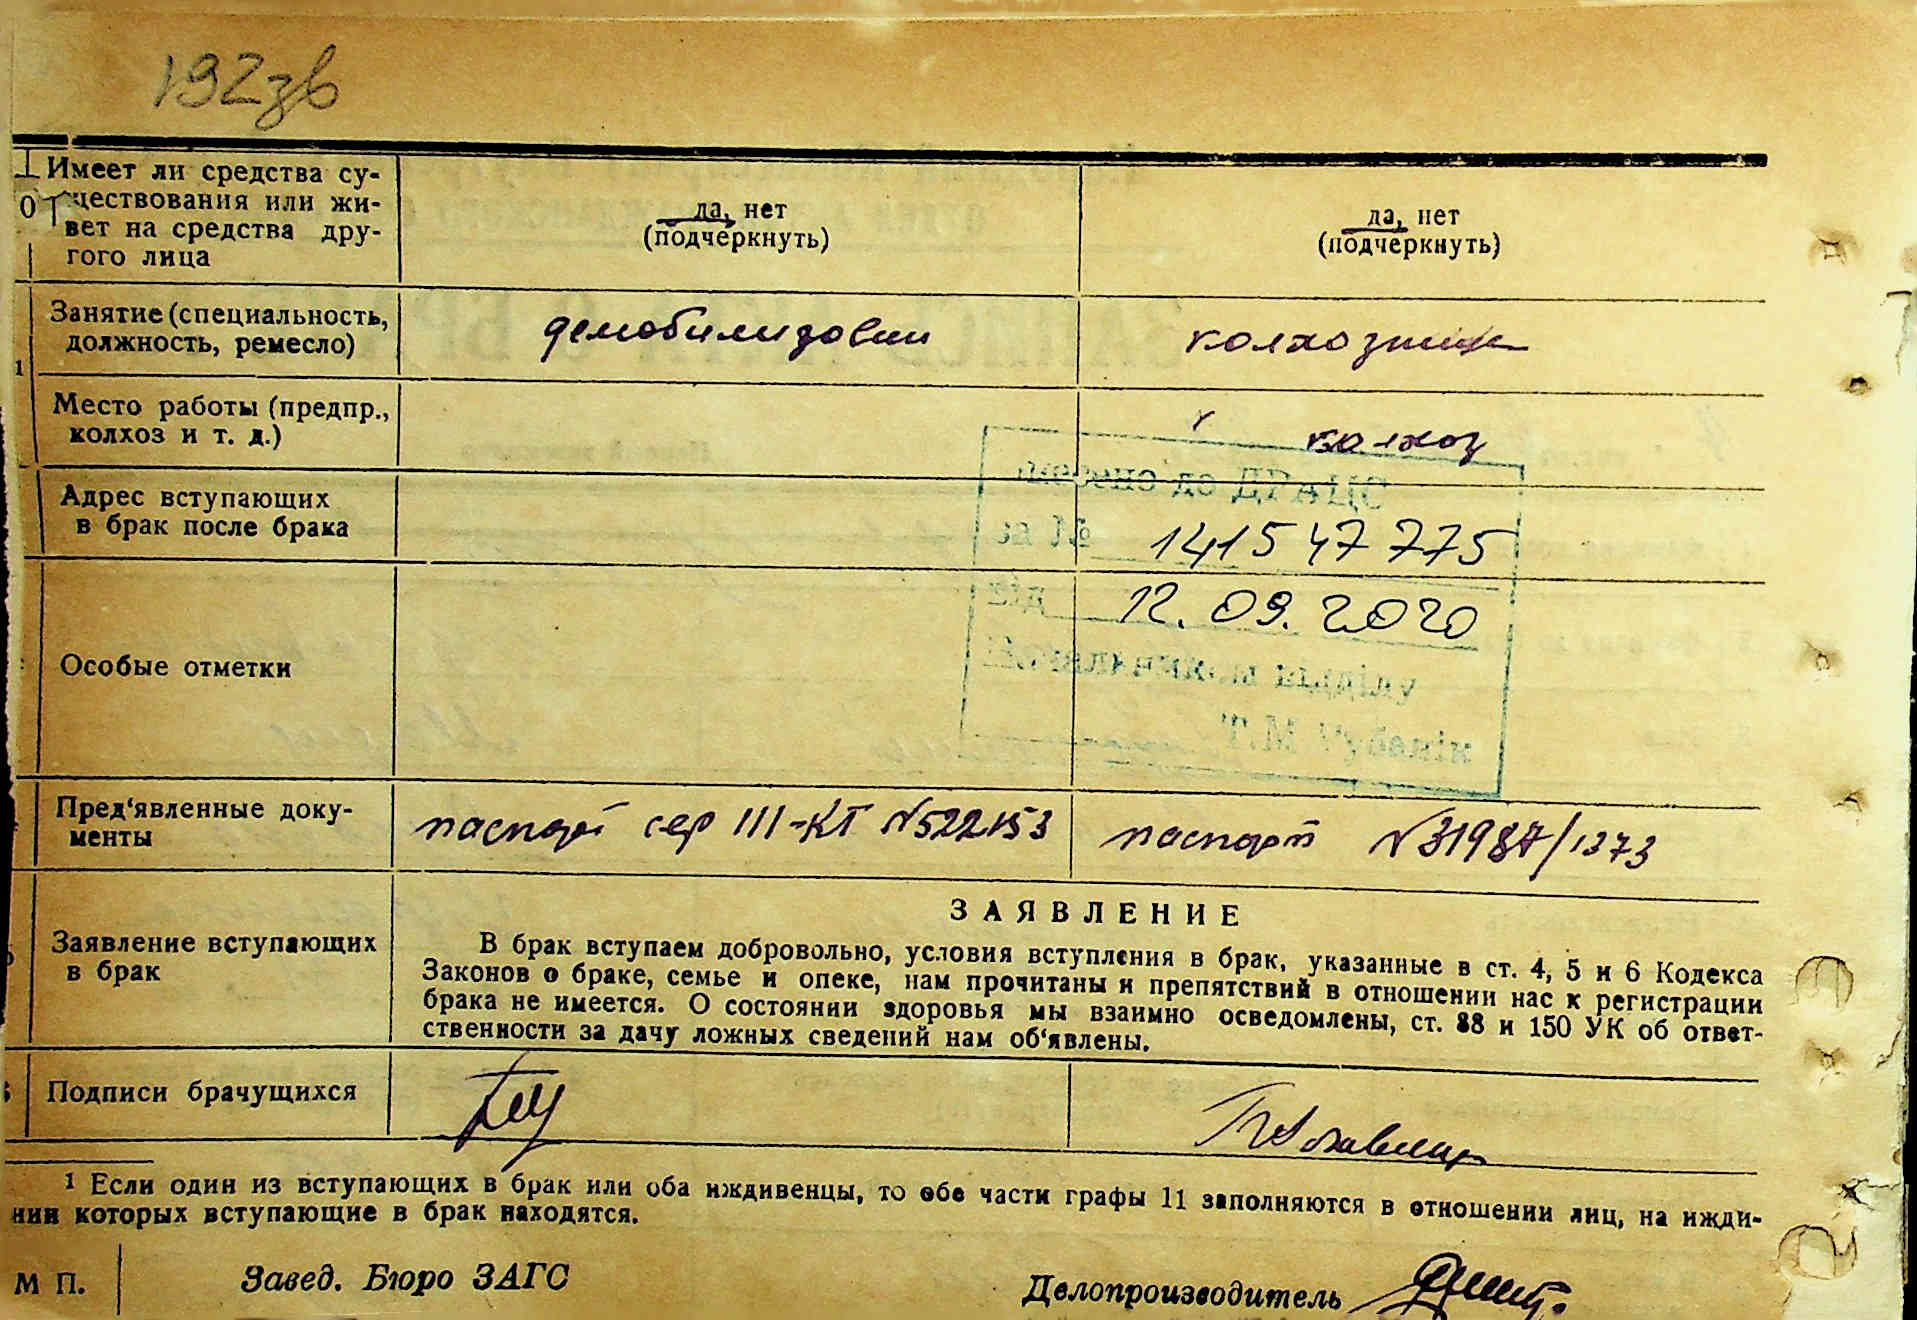 192зв
Имеет ли средства су-
ществования или жи-
вет на средства дру-
гого лица
да, нет
(подчеркнуть)
да, нет
(подчеркнуть)
Занятие (специальность,
должность, ремесло)
демобилизован
колхозница
Место работы (предпр.,
колхоз и т. д.)
колхоз
Адрес вступающих
в брак после брака
№ 141547775
від 12.09.2020
відділу
Т.М
Особые отметки
Пред‘явленные доку-
менты
паспорт сер III-КТ №522153
паспорт №31987/1373
Заявление вступающих
в брак
ЗАЯВЛЕНИЕ
В брак вступаем добровольно, условия вступления в брак, указанные в ст. 4, 5 и 6 Кодекса
Законов о браке, семье и опеке, нам прочитаны и препятствий в отношении нас к регистрации
брака не имеется. О состоянии здоровья мы взаимно осведомлены, ст. 88 и 150 УК об ответ-
ственности за дачу ложных сведений нам об‘явлены.
Подписи брачущихся
1 Если один из вступающих в брак или оба иждивенцы, то обе части графы 11 заполняются в отношении лиц, на ижди-
нии которых вступающие в брак находятся.
М П.
Завед. Бюро ЗАГС
Делопроизводитель